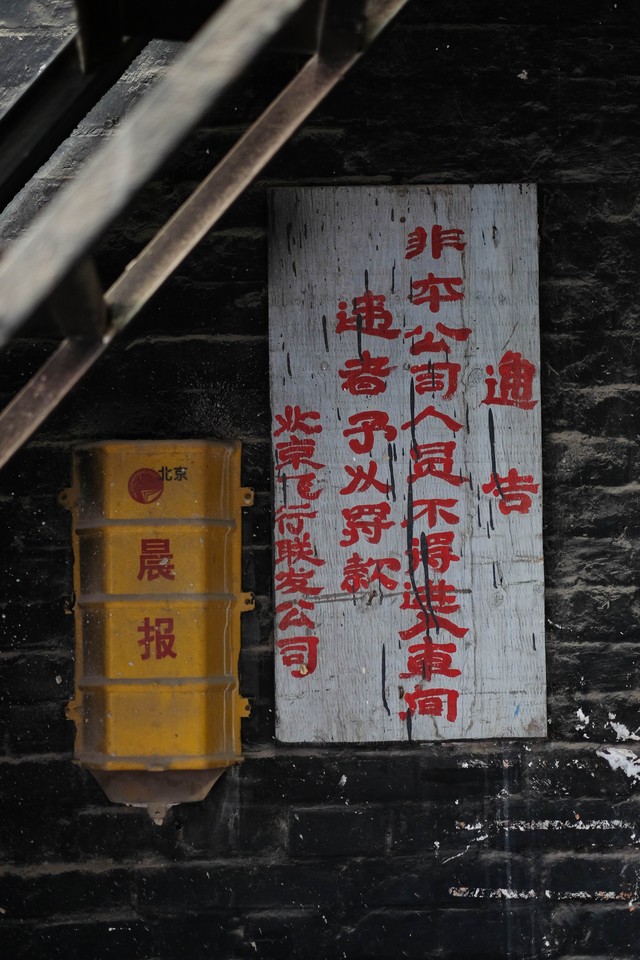 通告
非本公司人员不得进入车间
违者予以罚款
北京飞行联发公司
北京
晨
报